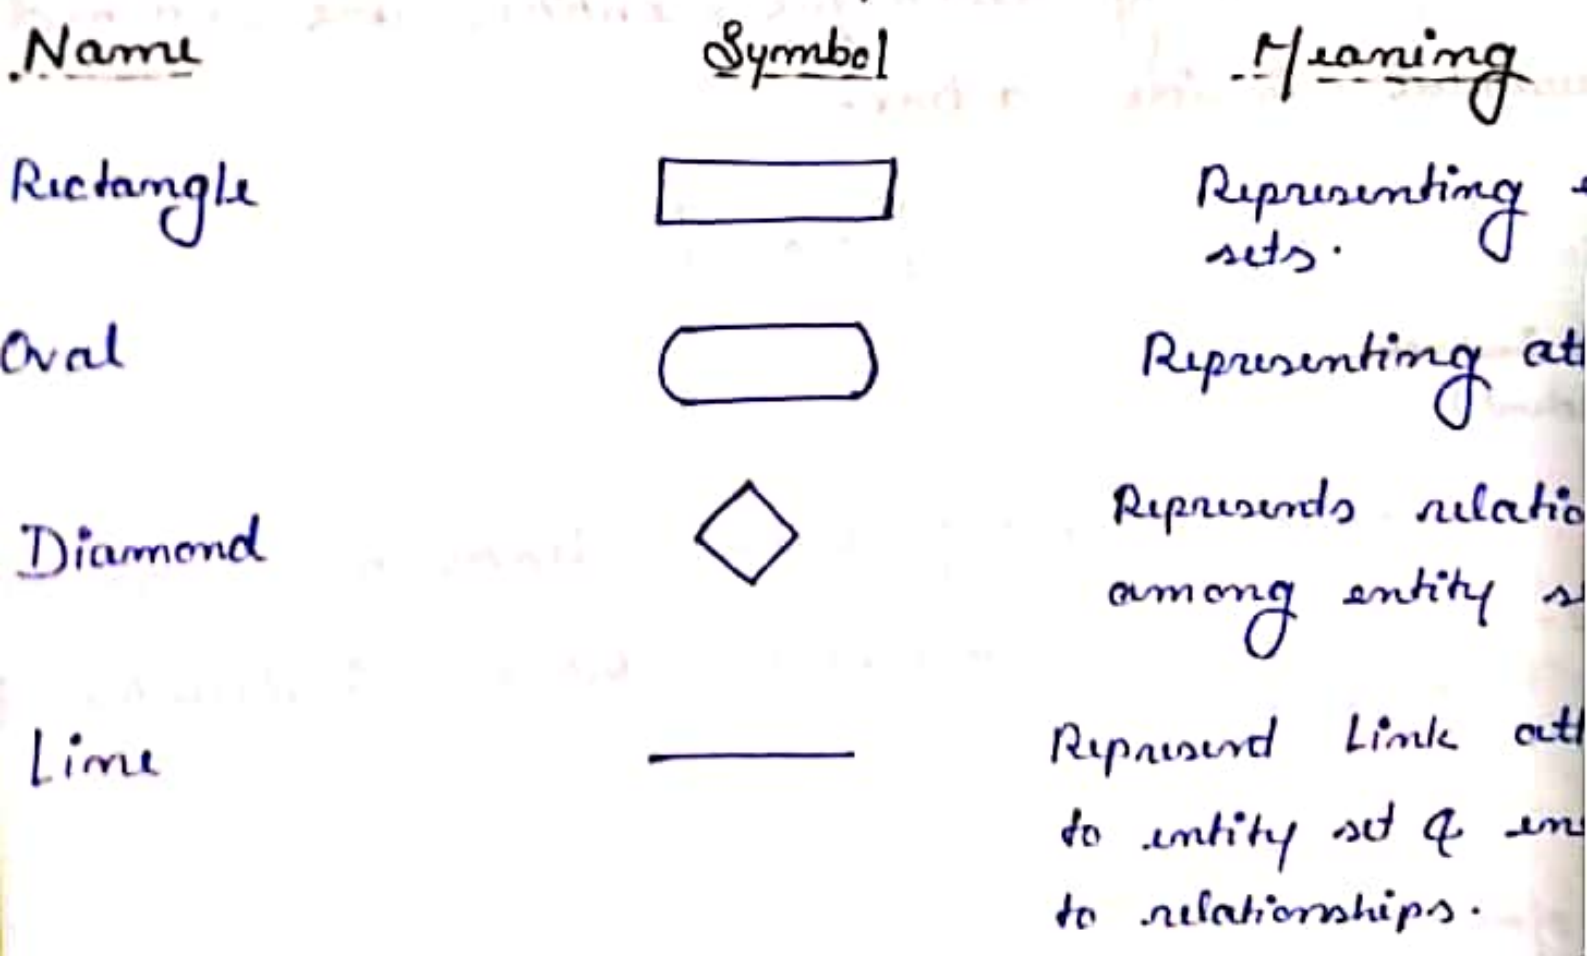 Name Symbol Meaning
Rectangle Representing
sets.
Oval Representing at
Diamond Represents relatio
among entity s
Line Represent Link att
to entity set & en
to relationships.